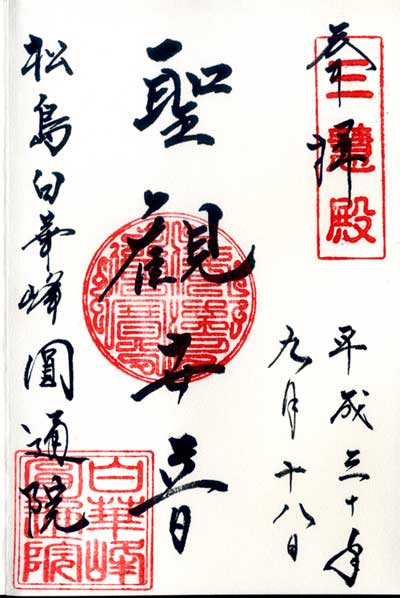 三慧殿
奉拝
平成三十年
九月十八日
聖觀世音
松島白華峰圓通院
白華峰
圓通院